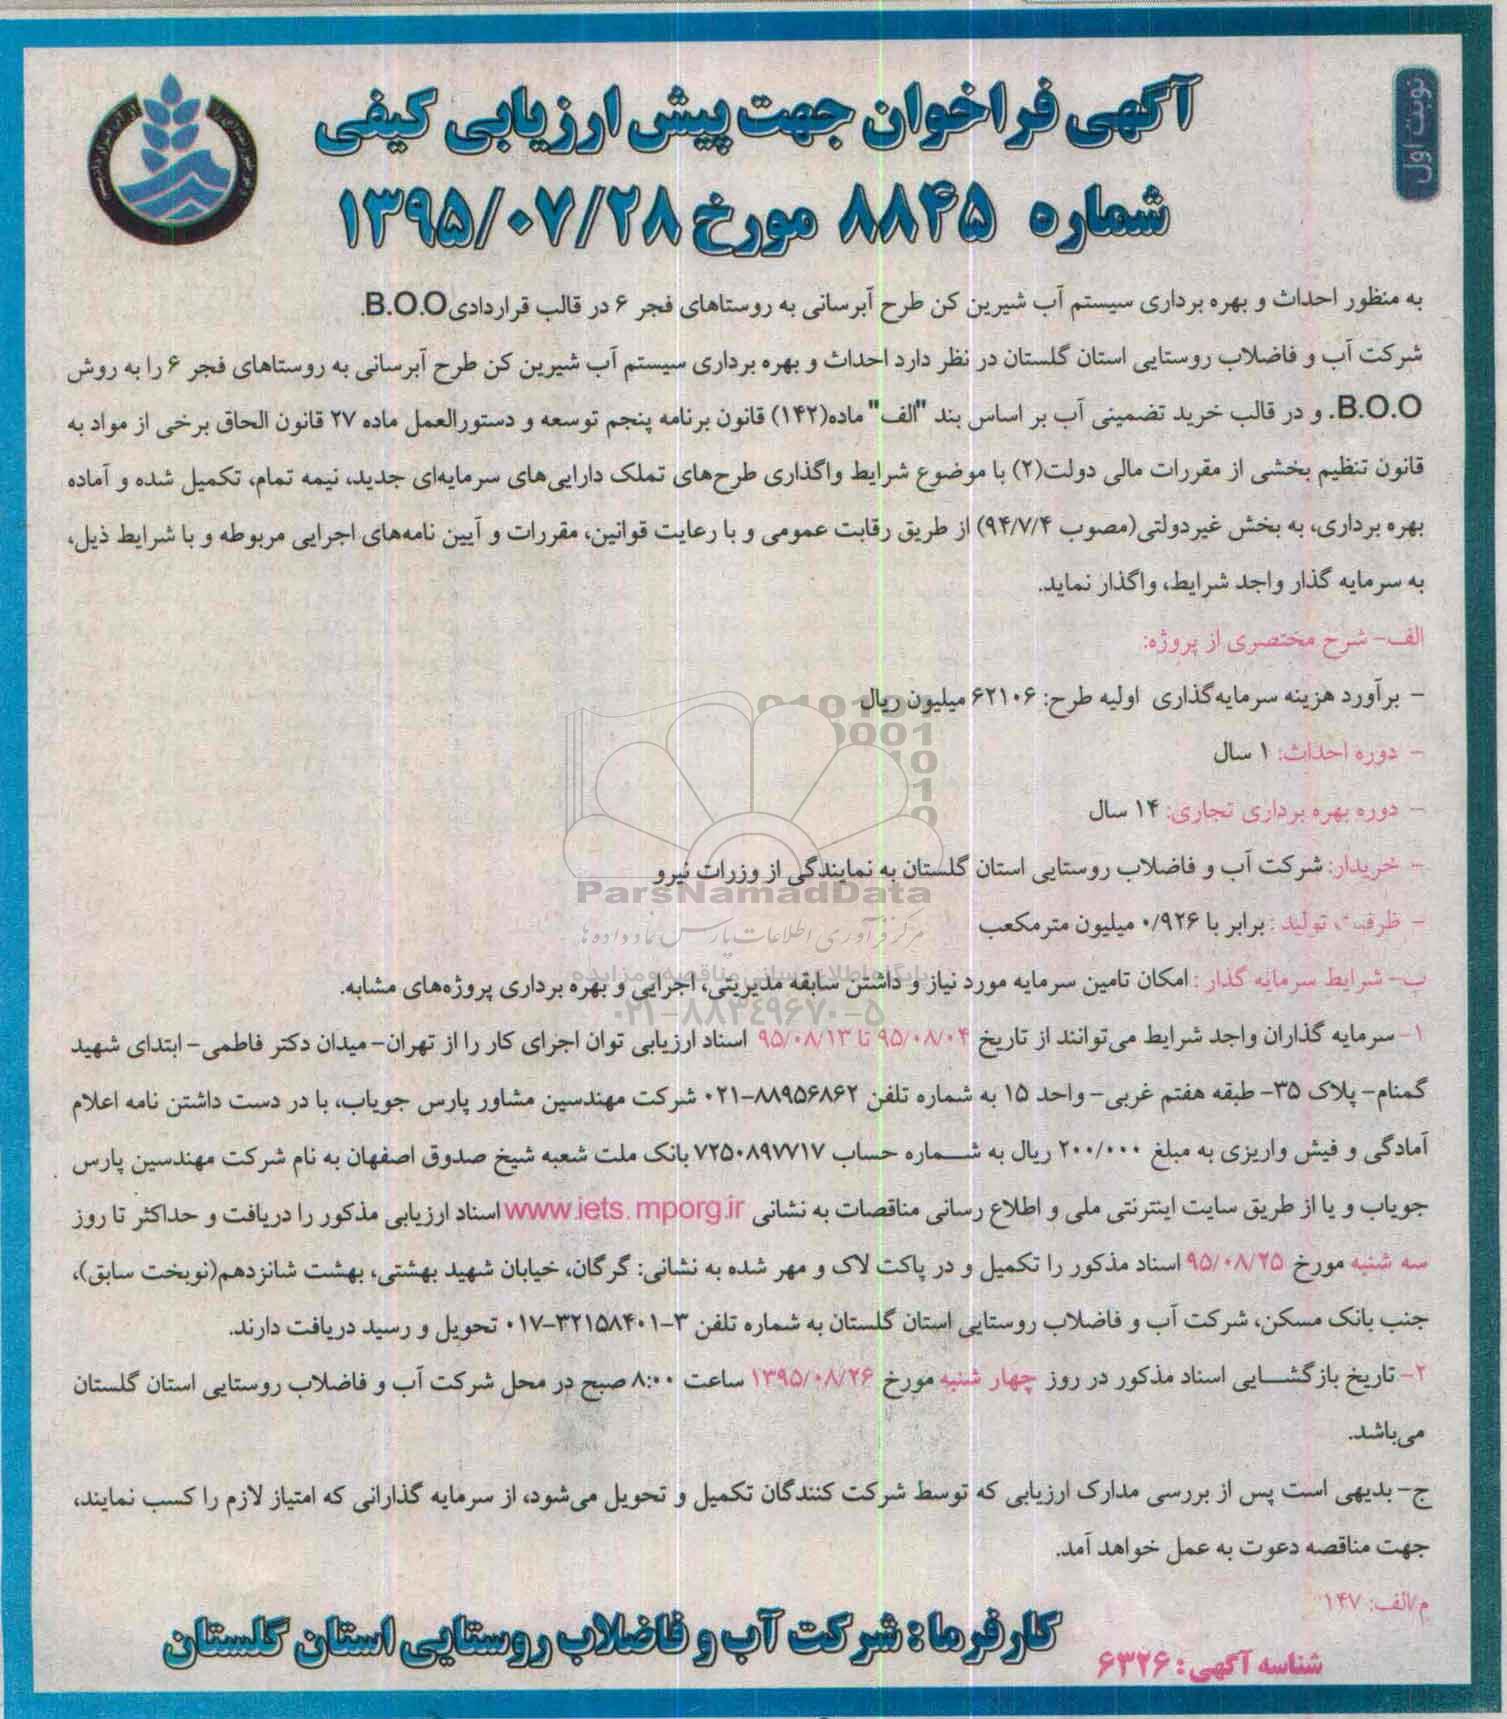 نوبت اول
آگهی فراخوان جهت پیش ارزیابی کیفی
شماره ۸۸۴۵ مورخ ۱۳۹۵/۰۷/۲۸
به منظور احداث و بهره برداری سیستم آب شیرین کن طرح آبرسانی به روستاهای فجر ۶ در قالب قراردادی B.O.O.
شرکت آب و فاضلاب روستایی استان گلستان در نظر دارد احداث و بهره برداری سیستم آب شیرین کن طرح آبرسانی به روستاهای فجر ۶ را به روش
B.O.O. و در قالب خرید تضمینی آب بر اساس بند "الف" ماده(۱۴۲) قانون برنامه پنجم توسعه و دستورالعمل ماده ۲۷ قانون الحاق برخی از مواد به
قانون تنظیم بخشی از مقررات مالی دولت(۲) با موضوع شرایط واگذاری طرح‌های تملک دارایی‌های سرمایه‌ای جدید، نیمه تمام، تکمیل شده و آماده
بهره برداری، به بخش غیردولتی(مصوب ۹۴/۷/۴) از طریق رقابت عمومی و با رعایت قوانین، مقررات و آیین نامه‌های اجرایی مربوطه و با شرایط ذیل،
به سرمایه گذار واجد شرایط، واگذار نماید.
الف- شرح مختصری از پروژه:
- برآورد هزینه سرمایه‌گذاری اولیه طرح: ۶۲۱۰۶ میلیون ریال
- دوره احداث: ۱ سال
- دوره بهره برداری تجاری: ۱۴ سال
- خریدار: شرکت آب و فاضلاب روستایی استان گلستان به نمایندگی از وزرات نیرو
ParsNamadData
- ظرفیت تولید: برابر با ۰/۹۲۶ میلیون مترمکعب
مرکز فرآوری اطلاعات پارس نماد داده ها
پایگاه اطلاع رسانی مناقصه و مزایده
ب- شرایط سرمایه گذار: امکان تامین سرمایه مورد نیاز و داشتن سابقه مدیریتی، اجرایی و بهره برداری پروژه‌های مشابه.
۰۲۱-۸۸۳۴۹۶۷۰-۵
۱- سرمایه گذاران واجد شرایط می‌توانند از تاریخ ۹۵/۰۸/۰۴ تا ۹۵/۰۸/۱۳ اسناد ارزیابی توان اجرای کار را از تهران- میدان دکتر فاطمی- ابتدای شهید
گمنام- پلاک ۳۵- طبقه هفتم غربی- واحد ۱۵ به شماره تلفن ۸۸۹۵۶۸۶۲-۰۲۱ شرکت مهندسین مشاور پارس جویاب، با در دست داشتن نامه اعلام
آمادگی و فیش واریزی به مبلغ ۲۰۰/۰۰۰ ریال به شماره حساب ۷۲۵۰۸۹۷۷۱۷ بانک ملت شعبه شیخ صدوق اصفهان به نام شرکت مهندسین پارس
جویاب و یا از طریق سایت اینترنتی ملی و اطلاع رسانی مناقصات به نشانی www.iets.mporg.ir اسناد ارزیابی مذکور را دریافت و حداکثر تا روز
سه شنبه مورخ ۹۵/۰۸/۲۵ اسناد مذکور را تکمیل و در پاکت لاک و مهر شده به نشانی: گرگان، خیابان شهید بهشتی، بهشت شانزدهم(نوبخت سابق)،
جنب بانک مسکن، شرکت آب و فاضلاب روستایی استان گلستان به شماره تلفن ۳-۳۲۱۵۸۴۰۱-۰۱۷ تحویل و رسید دریافت دارند.
۲- تاریخ بازگشایی اسناد مذکور در روز چهار شنبه مورخ ۱۳۹۵/۰۸/۲۶ ساعت ۸:۰۰ صبح در محل شرکت آب و فاضلاب روستایی استان گلستان
می‌باشد.
ج- بدیهی است پس از بررسی مدارک ارزیابی که توسط شرکت کنندگان تکمیل و تحویل می‌شود، از سرمایه گذارانی که امتیاز لازم را کسب نمایند،
جهت مناقصه دعوت به عمل خواهد آمد.
م/الف: ۱۴۷
کارفرما: شرکت آب و فاضلاب روستایی استان گلستان
شناسه آگهی: ۶۳۲۶